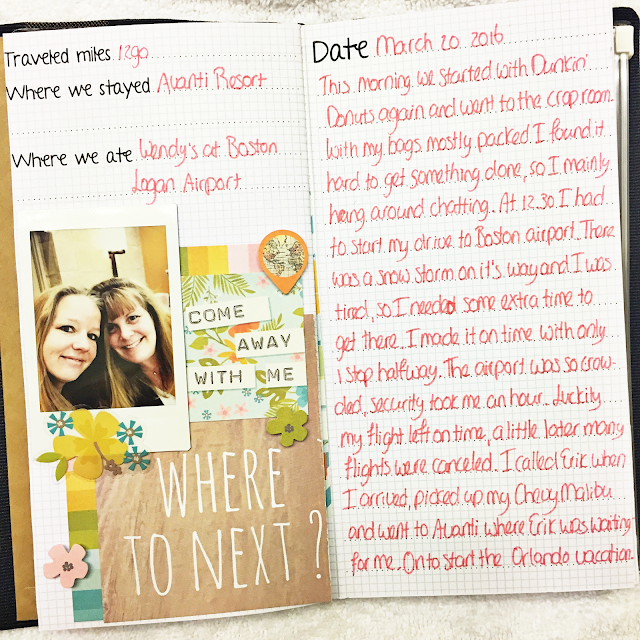 Traveled miles 1290
Where we stayed Avanti Resort
Where we ate Wendy's at Boston
Logan Airport
COME
AWAY
WITH ME
WHERE
TO NEXT?
Date March 20 2016
This morning we started with Dunkin'
Donuts again and went to the crop room.
With my bags mostly packed I found it
hard to get something done, so I mainly
hang around chatting. At 12.30 I had
to start my drive to Boston airport. There
was a snow storm on it's way and I was
tired, so I needed some extra time to
get there. I made it on time with only
1 stop halfway. The airport was so crow-
ded, security took me an hour. Luckily
my flight left on time, a little later many
flights were canceled. I called Erik when
I arrived, picked up my Chevy Malibu
and went to Avanti where Erik was waiting
for me. On to start the Orlando vacation.